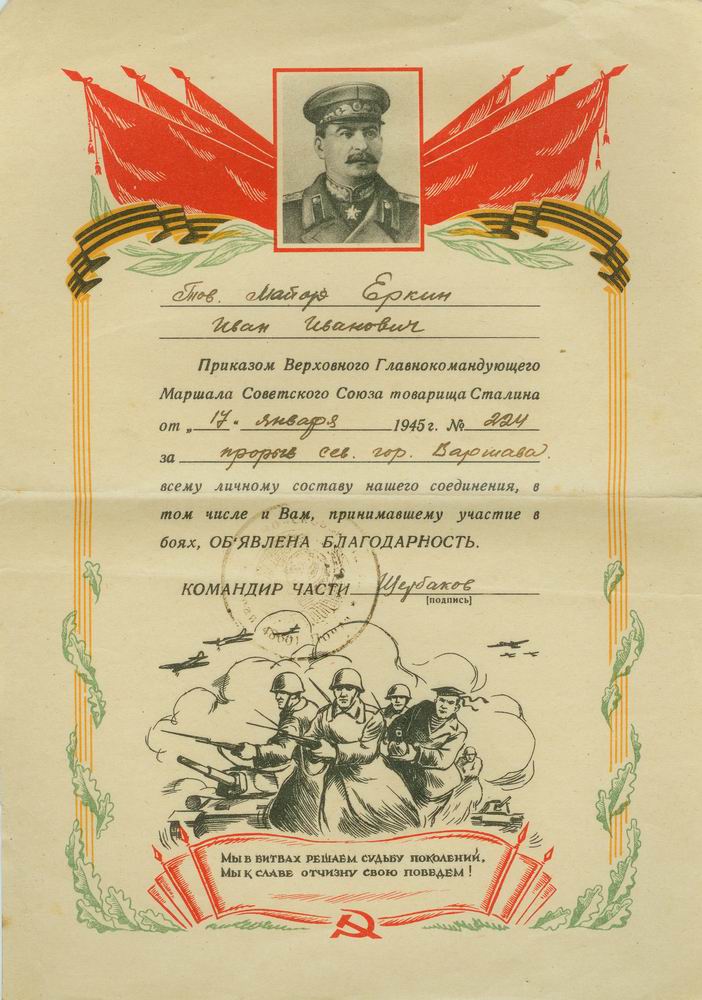 Тов. Майор Еркин
Иван Иванович
Приказом Верховного Главнокомандующего
Маршала Советского Союза товарища Сталина
от „17“ января 1945 г. № 224
за прорыв сев. гор. Варшава.
всему личному составу нашего соединения, в
том числе и Вам, принимавшему участие в
боях, ОБ'ЯВЛЕНА БЛАГОДАРНОСТЬ.
КОМАНДИР ЧАСТИ Щербаков
[подпись]
МЫ В БИТВАХ РЕШАЕМ СУДЬБУ ПОКОЛЕНИЙ,
МЫ К СЛАВЕ ОТЧИЗНУ СВОЮ ПОВЕДЕМ!